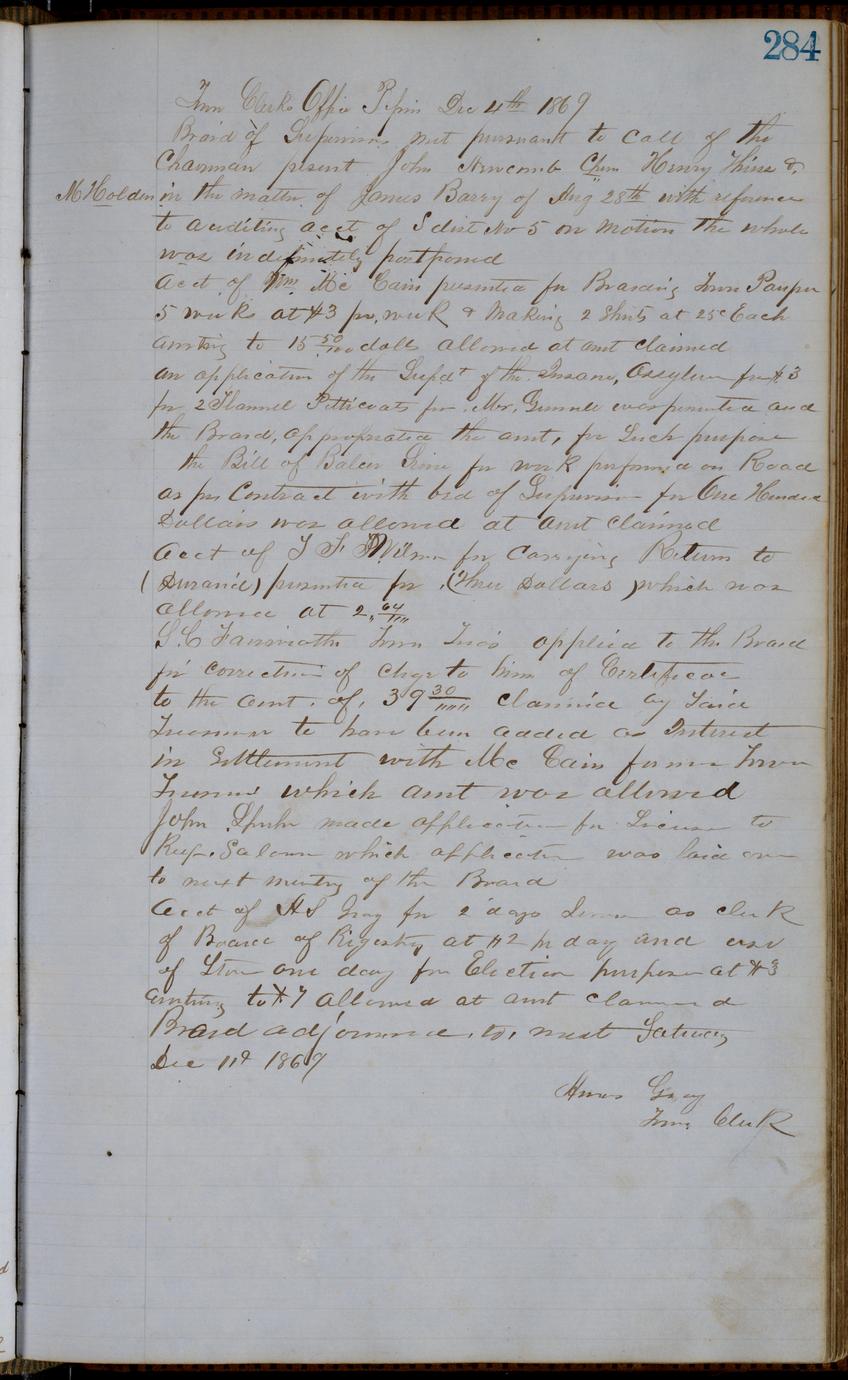 284
Town Clerks Office Pepin Dec 4th 1869
Board of Supervisors met pursuant to call of the
Chairman present John Newcomb Chm Henry &
M Holden in the matter of James Barry of Aug 28th with reference
to auditing acct of S dist No 5 on motion the whole
was indefinitely postponed
acct of Wm Mc Cain presented for Boarding Town Pauper
5 weeks at $3 pr week & Making 2 Shirts at 25c Each
amtng to 15 50/100 dolls allowed at amt claimed
an application of the Supdt of the Insane Assylum for $3
for 2 Flannel Petticoats for Mrs. was presented and
the Board, appropriated the amt, for Such purpose
the Bill of for work performed on Road
as per Contract with brd of Supervisors for One Hundred
Dollars was allowed at amt claimed
acct of for Carrying Returns to
(Durand) presented for (Three Dollars) which was
allowed at 2 64/""
S. C Farnsworth Town Treas applied to the Board
for correction of chge to him of Certificae
to the amt. of, 39 30/"""" claimed by Said
Treasurer to have been added as Interest
in Settlement with Mc Cain former Town
Treasurer which amt was allowed
John made application for License to
Keep Saloon which application was laid over
to next meeting of the Board
acct of H S Gray for 2 days as clerk
of Board of Regestry at $2 pr day and use
of Store one day for Election purpose at $3
amtng to $7 allowed at amt claimed
Board adjourned, to, next Saturday
Dec 11th 1869
Gray
Town Clerk